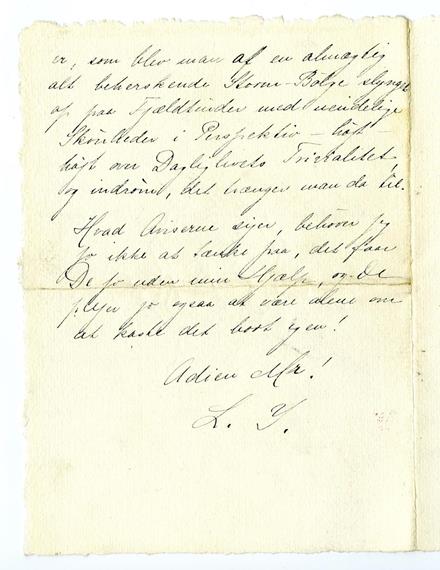 er, som blev man af en almægtig
alt beherskende Storm-Bølge slynget
op paa Fjældtinder med uendelige
Skönheder i Perspektiv – højt –
højt over Dagliglivets Trivialitet,
og indrøm, det trænger man da til.
Hvad Aviserne siger, behøver jeg
jo ikke at tænke paa, det faar
De jo uden min Hjælp, og De
plejer jo ogsaa at være alene om
at kaste det bort igen!
Adieu Mr!
L. Y.